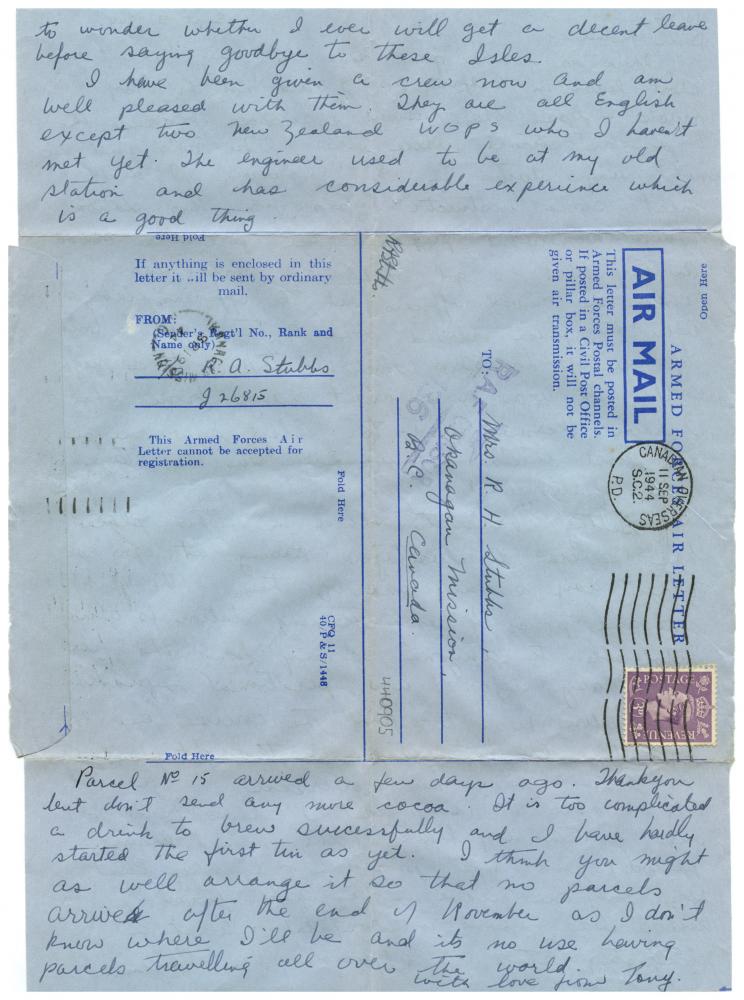 to wonder whether I ever will get a decent leave
before saying goodbye to these Isles.
I have been given a crew now and am
well pleased with them. They are all English
except two New Zealand WOPS who I haven't
met yet. The engineer used to be at my old
station and has considerable experience which
is a good thing.
Fold Here
If anything is enclosed in this
letter it will be sent by ordinary
mail.
FROM:
(Sender's Regt'l No., Rank and
Name only)
R. A. Stubbs
J 26815
This Armed Forces Air
Letter cannot be accepted for
registration.
Fold Here
CFQ 11
40/P & S/1448
Open Here
ARMED FORCES AIR LETTER
AIR MAIL
This letter must be posted in
Armed Forces Postal channels.
If posted in a Civil Post Office
or pillar box, it will not be
given air transmission.
CANADIAN OVERSEAS
11 SEP
1944
S.C.2.
P.D.
POSTAGE
3D
REVENUE
TO:
Mrs. R. H. Stubbs,
Okanagan Mission,
B.C. Canada.
440905
Fold Here
Parcel No 15 arrived a few days ago. Thankyou
but don't send any more cocoa. It is too complicated
a drink to brew successfully and I have hardly
started the first tin as yet. I think you might
as well arrange it so that no parcels
arrive after the end of November as I don't
know where I'll be and its no use having
parcels travelling all over the world.
with love from Tony.